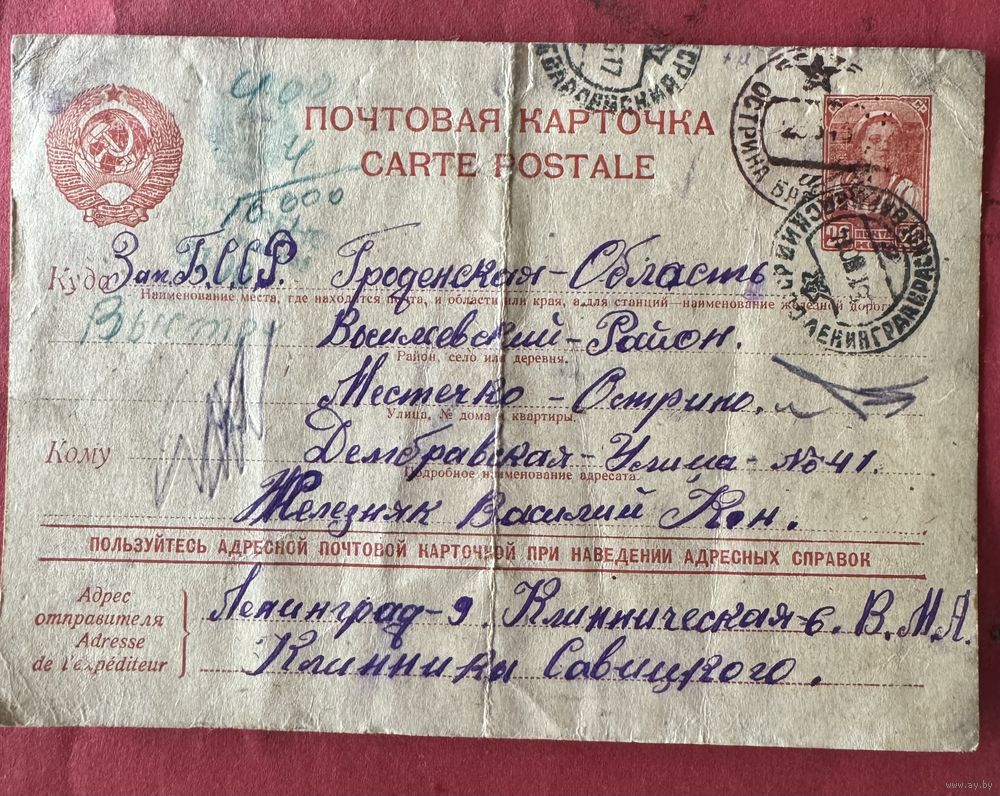 400
ПОЧТОВАЯ КАРТОЧКА
4
CARTE POSTALE
10.000
ОСТРИНА
ЛЕНИНГРАД
Куда Зап. Б.С.С.Р. Гроденская - Область
Наименование места, где находится почта, и области или края, а для станций—наименование железной дороги
Василевский - Район.
Район, село или деревня.
Местечко - Острино.
Улица, № дома и квартиры.
Кому Дембравская - Улица - № 41.
Подробное наименование адресата.
Железняк Василий Кон.
ПОЛЬЗУЙТЕСЬ АДРЕСНОЙ ПОЧТОВОЙ КАРТОЧКОЙ ПРИ НАВЕДЕНИИ АДРЕСНЫХ СПРАВОК
Адрес отправителя
Adresse de l'expéditeur
Ленинград - 9. Клинническая - 6. В.М.А.
Клинники Савицкого.
www.ay.by